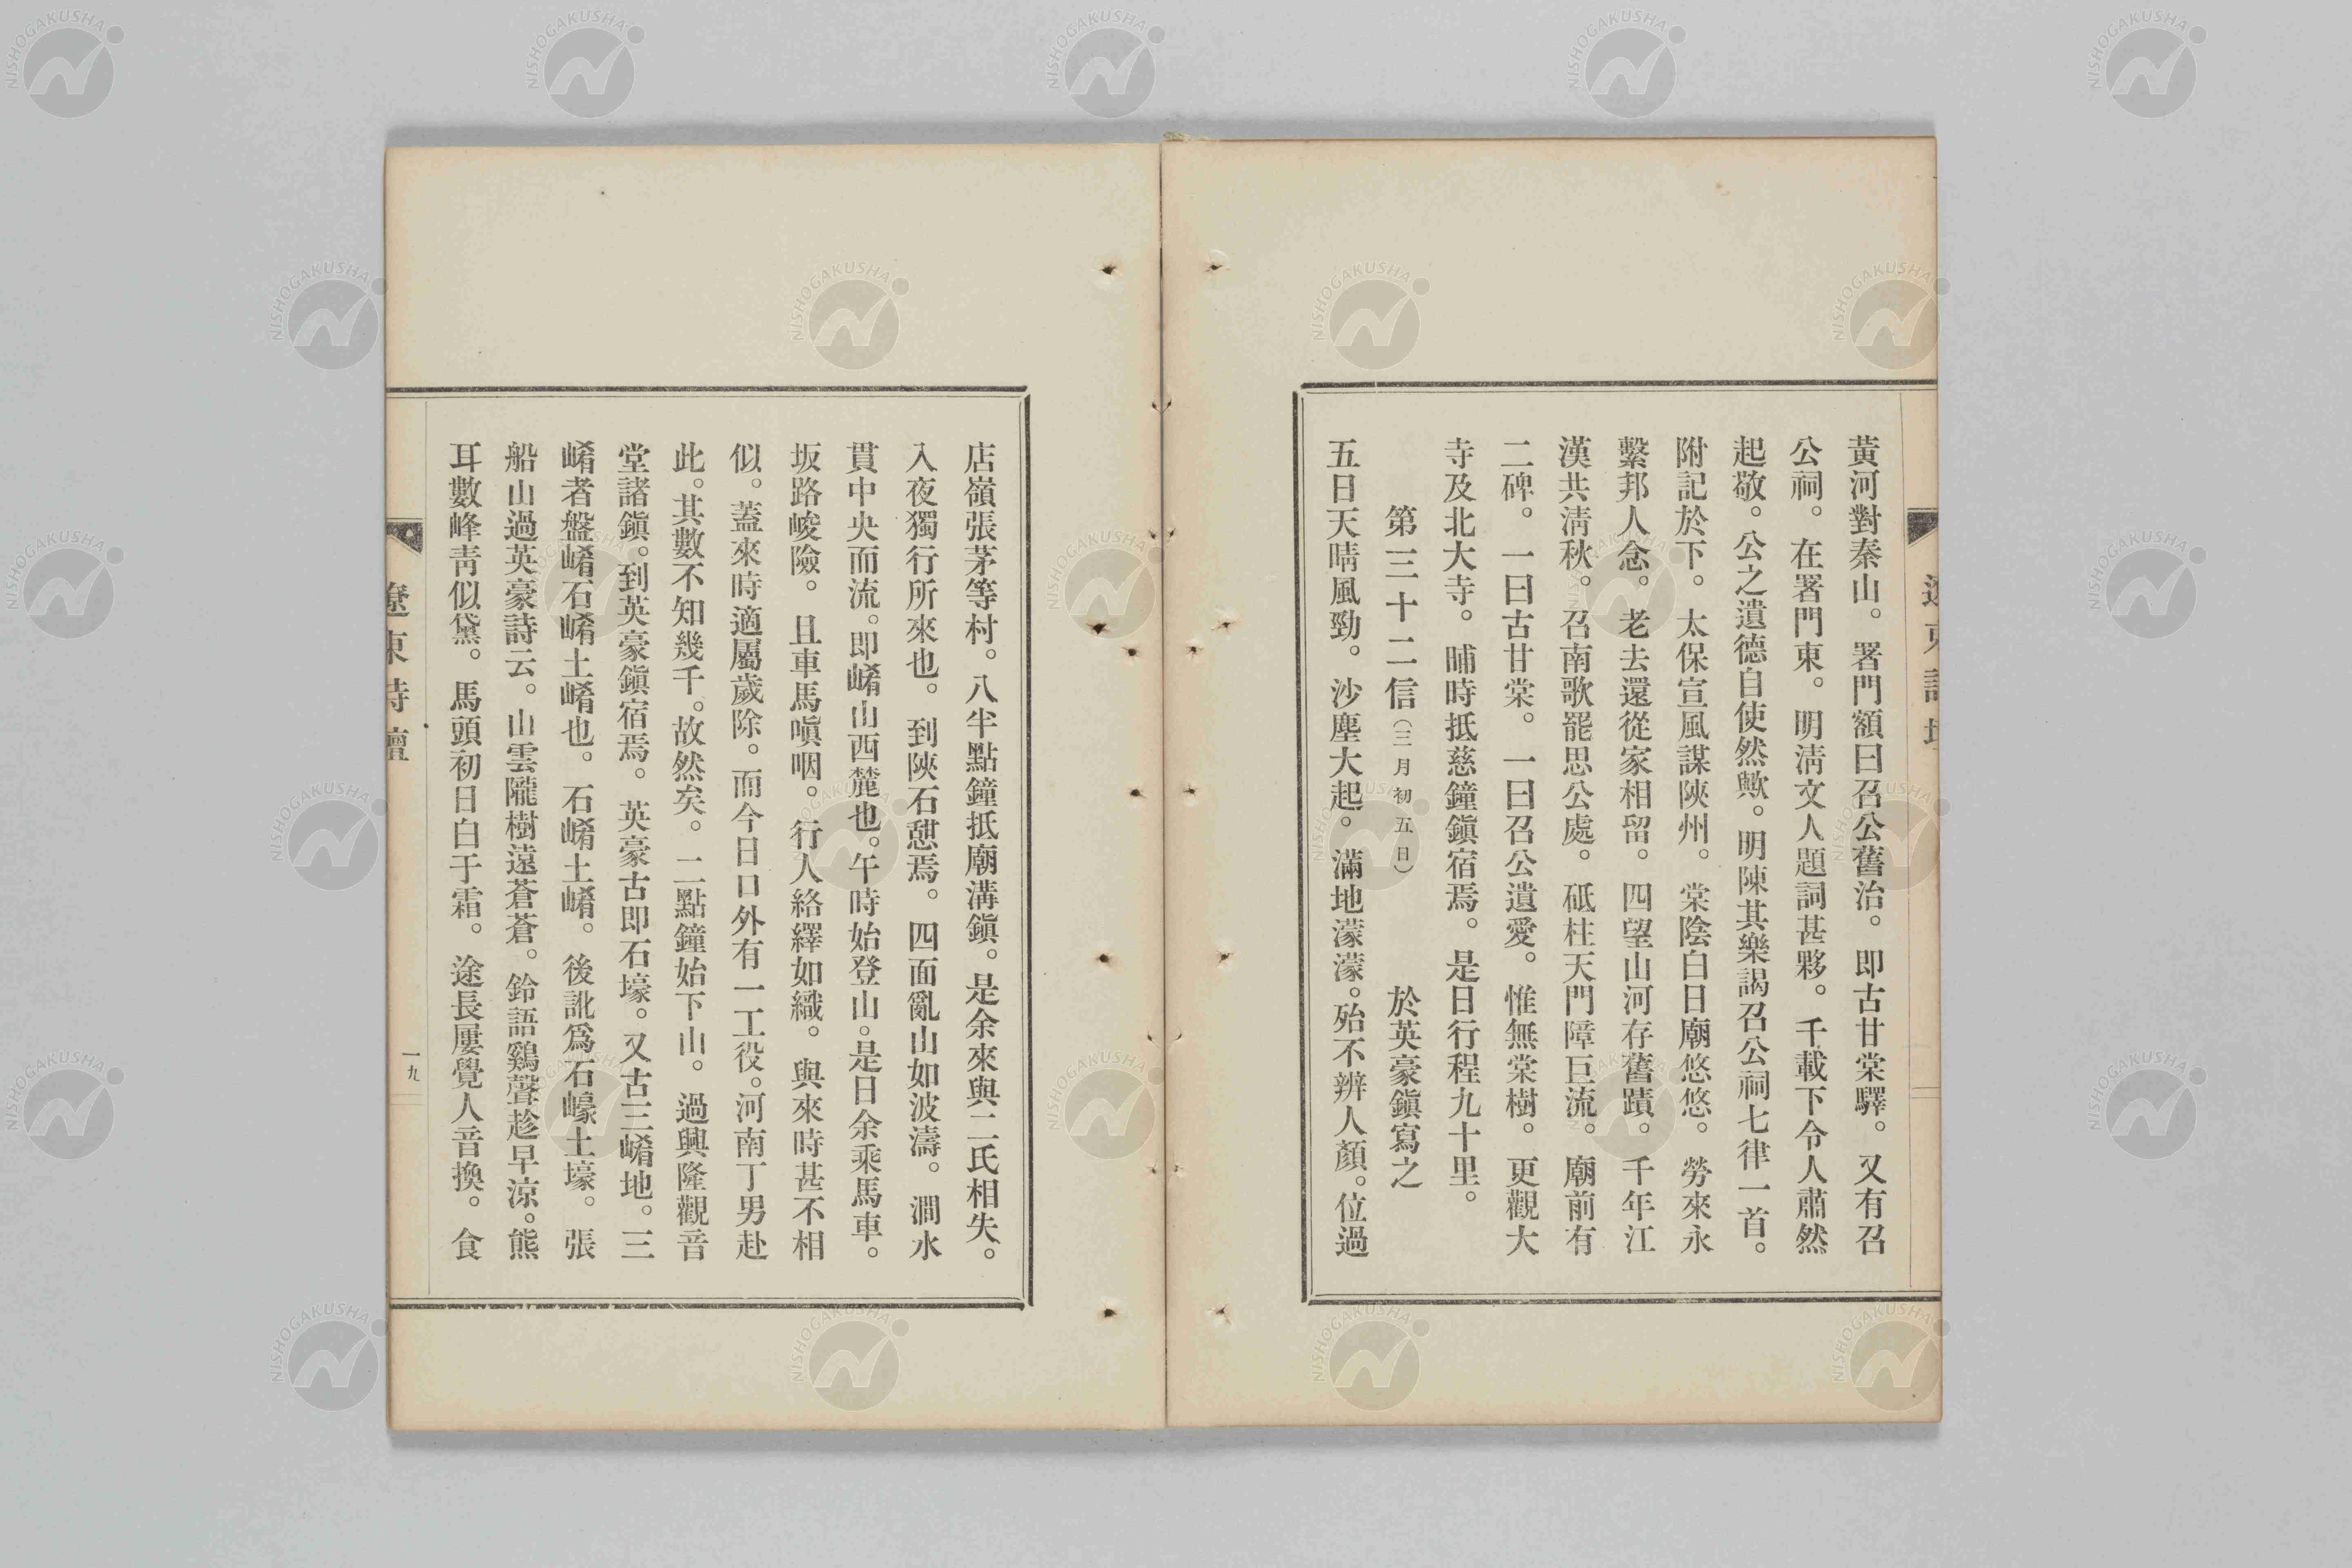 黃河對秦山。署門額曰召公舊治。即古甘棠驛。又有召
公祠。在署門東。明淸文人題詞甚夥。千載下令人肅然
起敬。公之遺德自使然歟。明陳其樂謁召公祠七律一首。
附記於下。太保宣風謀陝州。棠陰白日廟悠悠。勞來永
繫邦人念。老去還從家相留。四望山河存舊蹟。千年江
漢共淸秋。召南歌罷思公處。砥柱天門障巨流。廟前有
二碑。一曰古甘棠。一曰召公遺愛。惟無棠樹。更觀大
寺及北大寺。晡時抵慈鐘鎭宿焉。是日行程九十里。
第三十二信(三月初五日) 於英豪鎭寫之
五日天晴風勁。沙塵大起。滿地濛濛。殆不辨人顏。位過
店嶺張茅等村。八半點鐘抵廟溝鎭。是余來與二氏相失。
入夜獨行所來也。到陝石憇焉。四面亂山如波濤。澗水
貫中央而流。即崤山西麓也。午時始登山。是日余乘馬車。
坂路峻險。且車馬嗔咽。行人絡繹如織。與來時甚不相
似。蓋來時適屬歲除。而今日口外有一工役。河南丁男赴
此。其數不知幾千。故然矣。二點鐘始下山。過興隆觀音
堂諸鎭。到英豪鎭宿焉。英豪古即石壕。又古三崤地。三
崤者盤崤石崤土崤也。石崤土崤。後訛爲石㠙土壕。張
船山過英豪詩云。山雲隴樹遠蒼蒼。鈴語鷄聲趁早涼。熊
耳數峰靑似黛。馬頭初日白于霜。途長屢覺人音換。食
遼東詩壇
一九
NISHOGAKUSHA